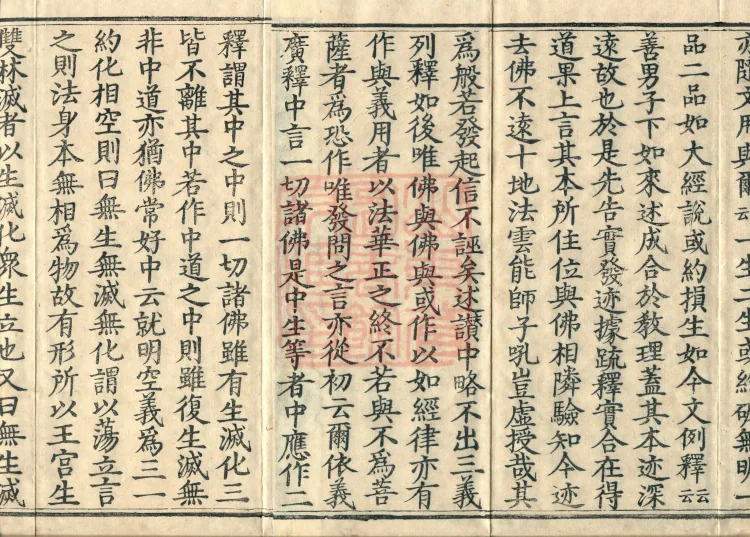 亦隨文用與爾云一生二生或經破無明一
品二品如大經說或約損生如今文例釋云云
善男子下如來述成合於教理蓋其本迹深
遠故也於是先告實發迹據疏釋實合在得
道果上言其本所住位與佛相隣驗知今迹
去佛不遠十地法雲能師子吼豈虛授哉其
為般若發起信不誣矣述讃中略不出三義
列釋如後唯佛與佛與或作以如經律亦有
作與義用者以法華正之終不若與不為菩
薩者為恐作唯發問之言亦從初云爾依義
廣釋中言一切諸佛是中生等者中應作二
釋謂其中之中則一切諸佛雖有生滅化三
皆不離其中若作中道之中則雖復生滅無
非中道亦猶佛常好中云就明空義為三一
約化相空則曰無生無滅無化謂以蕩立言
之則法身本無相為物故有形所以王宮生
雙林滅者以生滅化衆生立也又曰無生滅